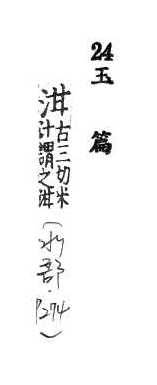 24玉篇
泔古三切米汁謂之泔(水部·P294)